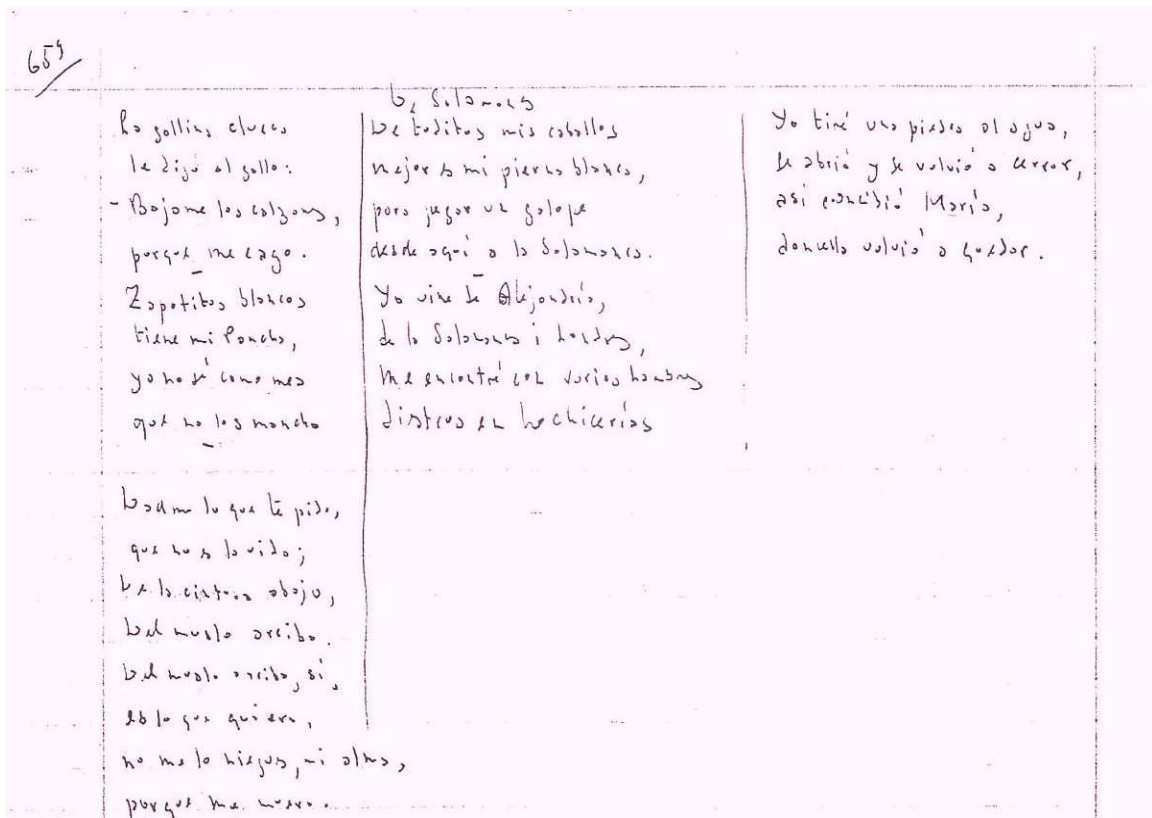 659
La gallina clueca
le dijo al gallo:
- Bajame los calzones,
porque me cago.
Zapatitos blancos
tiene mi Pancha,
yo no sé como mea
que no los mancha
Dadme lo que te pido,
que no es la vida;
De la cintura abajo,
Del muslo arriba.
Del muslo arriba, sí,
es lo que quiero,
no me lo niegues, mi alma,
porque me muero.
De Salamanca
De toditos mis caballos
mejor es mi pierna blanca,
para jugar un galope
desde aquí a la Salamanca.
Yo vine de Alejandría,
de la Salamanca i Londres,
me encontré con varios hombres
diestros en hechicerías
Yo tiré una piedra al agua,
se abrió y se volvió a cerrar,
así concibió María,
doncella volvió a quedar.